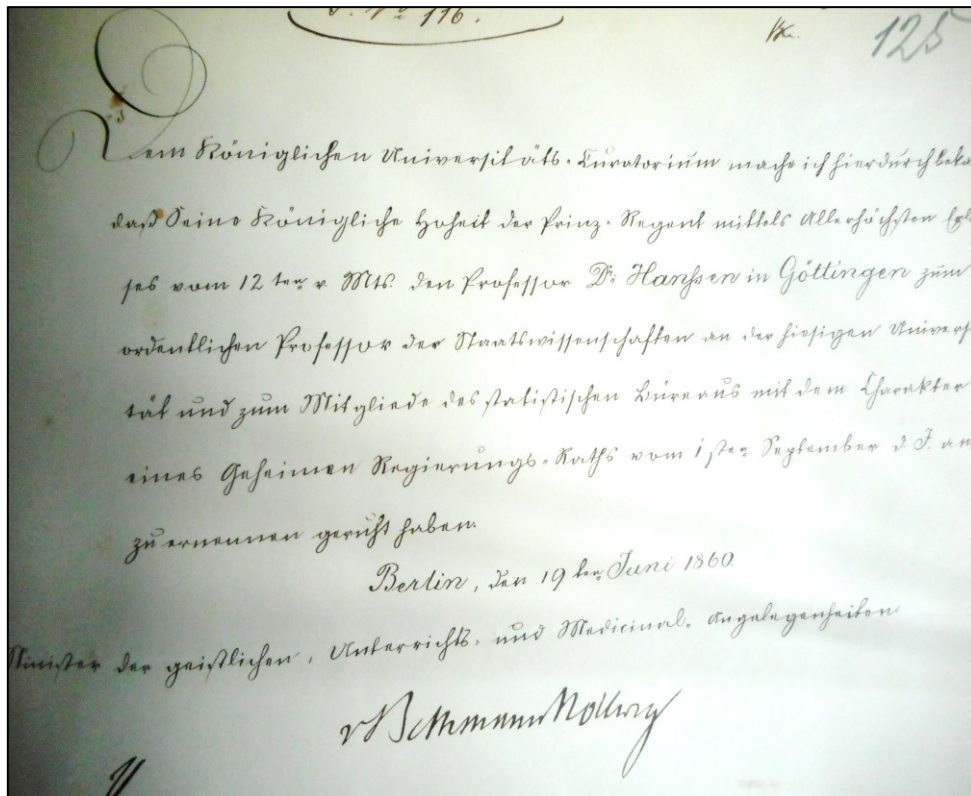 J. No 116.
125
Dem Königlichen Universitäts-Curatorium mache ich hierdurch beka
daß Seine Königliche Hoheit der Prinz-Regent mittels Allerhöchsten Erla
ses vom 12ten v. Mts. den Professor Dr. Hanssen in Göttingen zum
ordentlichen Professor der Staatswissenschaften an der hiesigen Universi
tät und zum Mitgliede des statistischen Büreaus mit dem Charakter
eines Geheimen Regierungs-Raths vom 1sten September d. J. an
zu ernennen geruht haben.
Berlin, den 19ten Juni 1860.
Minister der geistlichen, Unterrichts- und Medicinal-Angelegenheiten
v Bethmann Hollweg